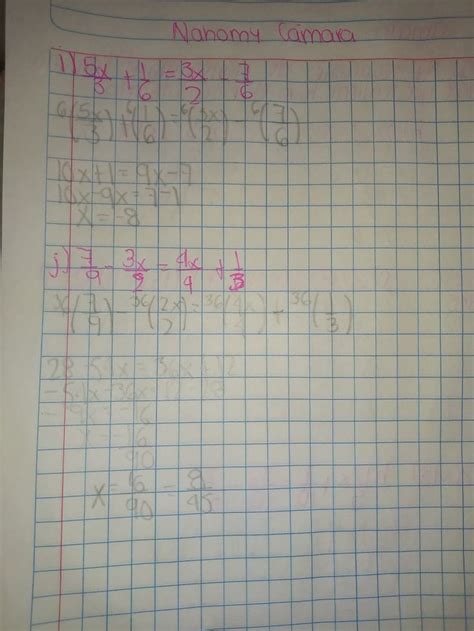 Nahomy Cámara
i) 5x/3 + 1/6 = 3x/2 - 7/6
6(5x/3) + 6(1/6) = 6(3x/2) - 6(7/6)
10x+1 = 9x-7
10x-9x = 7-1
x = -8
j) 7/9 - 3x/2 = 4x/4 + 1/3
(7/9) - 36(2x/2) = 36( ) + 36(1/3)
28-54x = 36x+12
x = 16/90 = 8/45